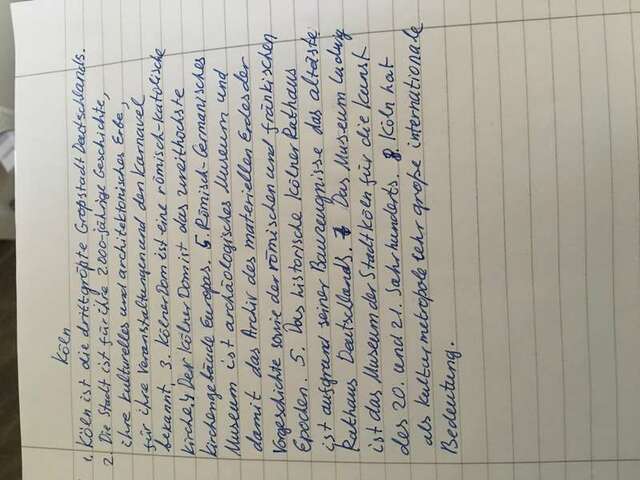 Köln
1. Köln ist die drittgrößte Großstadt Deutschlands.
2. Die Stadt ist für ihre 2.000-jährige Geschichte,
ihre kulturelles und architektonisches Erbe,
für ihre Veranstaltungen und den Karnaval
bekannt 3. Kölner Dom ist eine römisch-katolische
Kirche 4 Der Kölner Dom ist das zweithöchste
Kirchengebäude Europas. 5 Römisch-Germanisches
Museum ist archäologisches Museum und
damit das Archiv des materiellen Erdes der
Vorgeschichte sowie der römischen und fränkischen
Epochen. 5. Das historische Kölner Rathaus
ist aufgrund seiner Bauzeugnisse das altäste
Rathaus Deutschlands. 7 Das Museum Ludwig
ist das Museum der Stadt Köln für die Kunst
des 20. und 21. Jahrhunderts. 8 Köln hat
als Kulturmetropole sehr große internationale
Bedeutung.